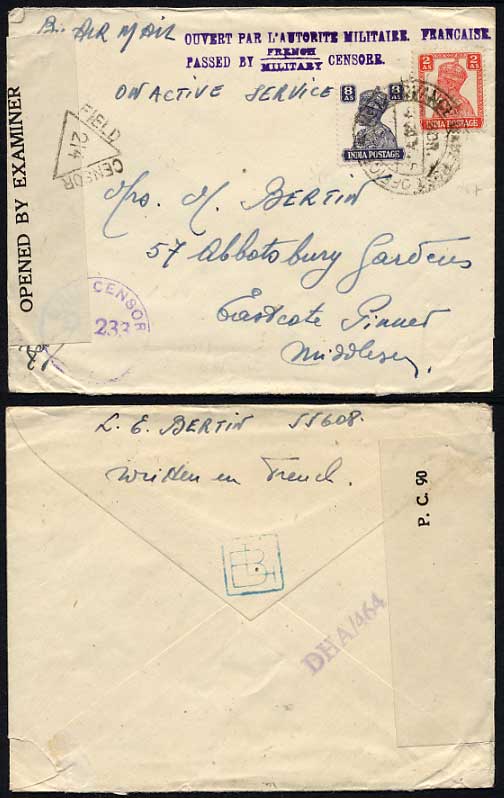 By AIR MAIL
OUVERT PAR L'AUTORITE MILITAIRE FRANCAISE.
PASSED BY FRENCH MILITARY CENSORE.
ON ACTIVE SERVICE
8 AS
8 AS
INDIA POSTAGE
2 AS
2 AS
INDIA POSTAGE
OPENED BY EXAMINER
FIELD
274
CENSOR
Mrs. M. BERTIN
57 Abbotsbury Gardens
Eastcote Pinner
Middlesex.
CENSOR
233
L. E. BERTIN 55608.
Written en French.
P. C. 90
DHA/464